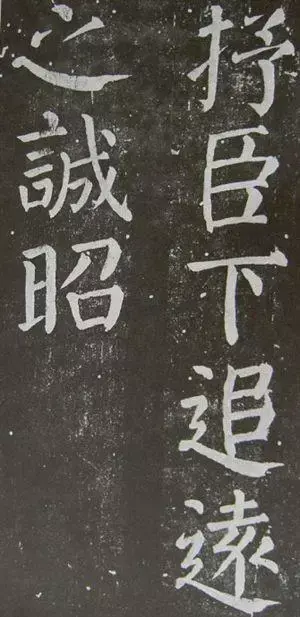 抒臣下追遠
之誠昭